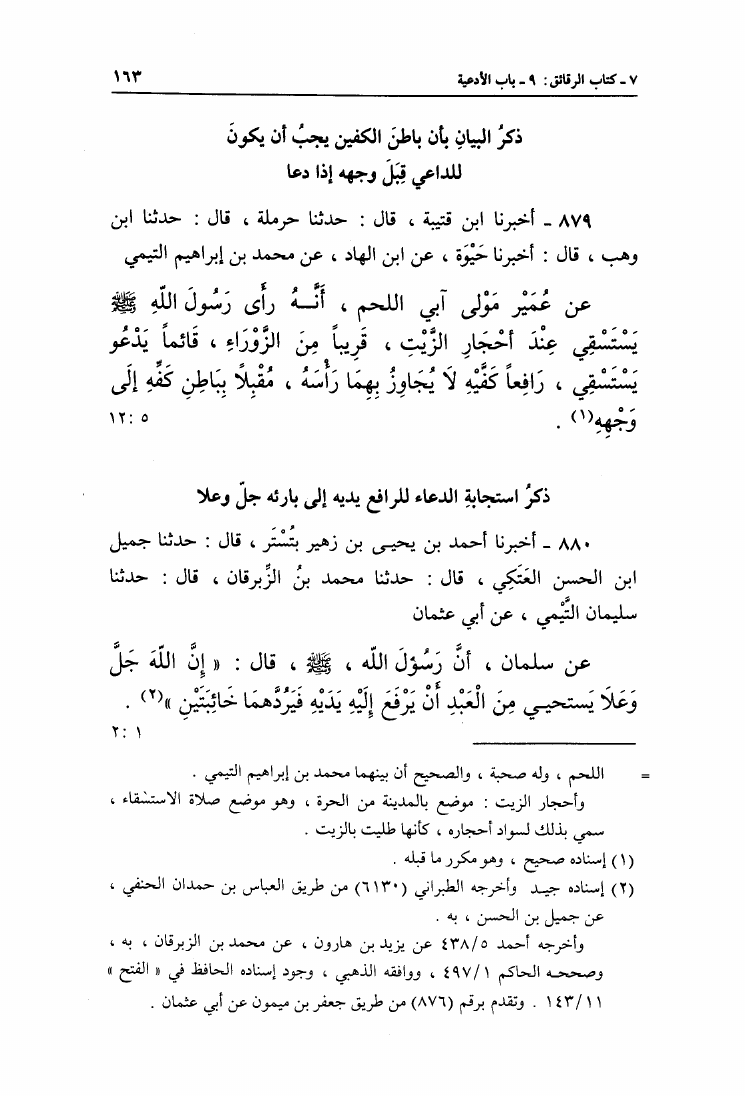 ٧ - كتاب الرقائق : ٩ - باب الأدعية ١٦٣
ذكرُ البيانِ بأن باطنَ الكفين يجبُ أن يكونَ
للداعي قِبَلَ وجهه إذا دعا
٨٧٩ - أخبرنا ابن قتيبة ، قال : حدثنا حرملة ، قال : حدثنا ابن
وهب ، قال : أخبرنا حَيْوَة ، عن ابن الهاد ، عن محمد بن إبراهيم التيمي
عن عُمَيْر مَوْلى آبي اللحم ، أَنَّـهُ رأى رَسُولَ اللهِ ﷺ
يَسْتَسْقِي عِنْدَ أحْجَارِ الزَّيْتِ ، قَرِيباً مِنَ الزَّوْرَاءِ ، قَائماً يَدْعُو
يَسْتَسْقِي ، رَافِعاً كَفَّيْهِ لَا يُجَاوِزُ بِهِمَا رَأْسَهُ ، مُقْبِلاً بِبَاطِنِ كَفِّهِ إلَى
وَجْهِهِ(١) . ٥ :١٢
ذكرُ استجابةِ الدعاء للرافع يديه إلى بارئه جلّ وعلا
٨٨٠ - أخبرنا أحمد بن يحيـى بن زهير بتُسْتَر ، قال : حدثنا جميل
ابن الحسن العَتَكِي ، قال : حدثنا محمد بنُ الزِّبرقان ، قال : حدثنا
سليمان التَّيْمي ، عن أبي عثمان
عن سلمان ، أنَّ رَسُوْلَ الله ، ﷺ ، قال : « إنَّ اللهَ جَلَّ
وَعَلَا يَستحيـي مِنَ الْعَبْدِ أَنْ يَرْفَعَ إِلَيْهِ يَدَيْهِ فَيَرُدَّهمَا خَائِبَتَيْنِ »(٢) .
١ :٢
= اللحم ، وله صحبة ، والصحيح أن بينهما محمد بن إبراهيم التيمي .
وأحجار الزيت : موضع بالمدينة من الحرة ، وهو موضع صلاة الاستسقاء ،
سمي بذلك لسواد أحجاره ، كأنها طليت بالزيت .
(١) إسناده صحيح ، وهو مكرر ما قبله .
(٢) إسناده جيـد وأخرجه الطبراني (٦١٣٠) من طريق العباس بن حمدان الحنفي ،
عن جميل بن الحسن ، به .
وأخرجه أحمد ٤٣٨/٥ عن يزيد بن هارون ، عن محمد بن الزبرقان ، به ،
وصححـه الحاكم ٤٩٧/١ ، ووافقه الذهبي ، وجود إسناده الحافظ في « الفتح »
١٤٣/١١ . وتقدم برقم (٨٧٦) من طريق جعفر بن ميمون عن أبي عثمان .